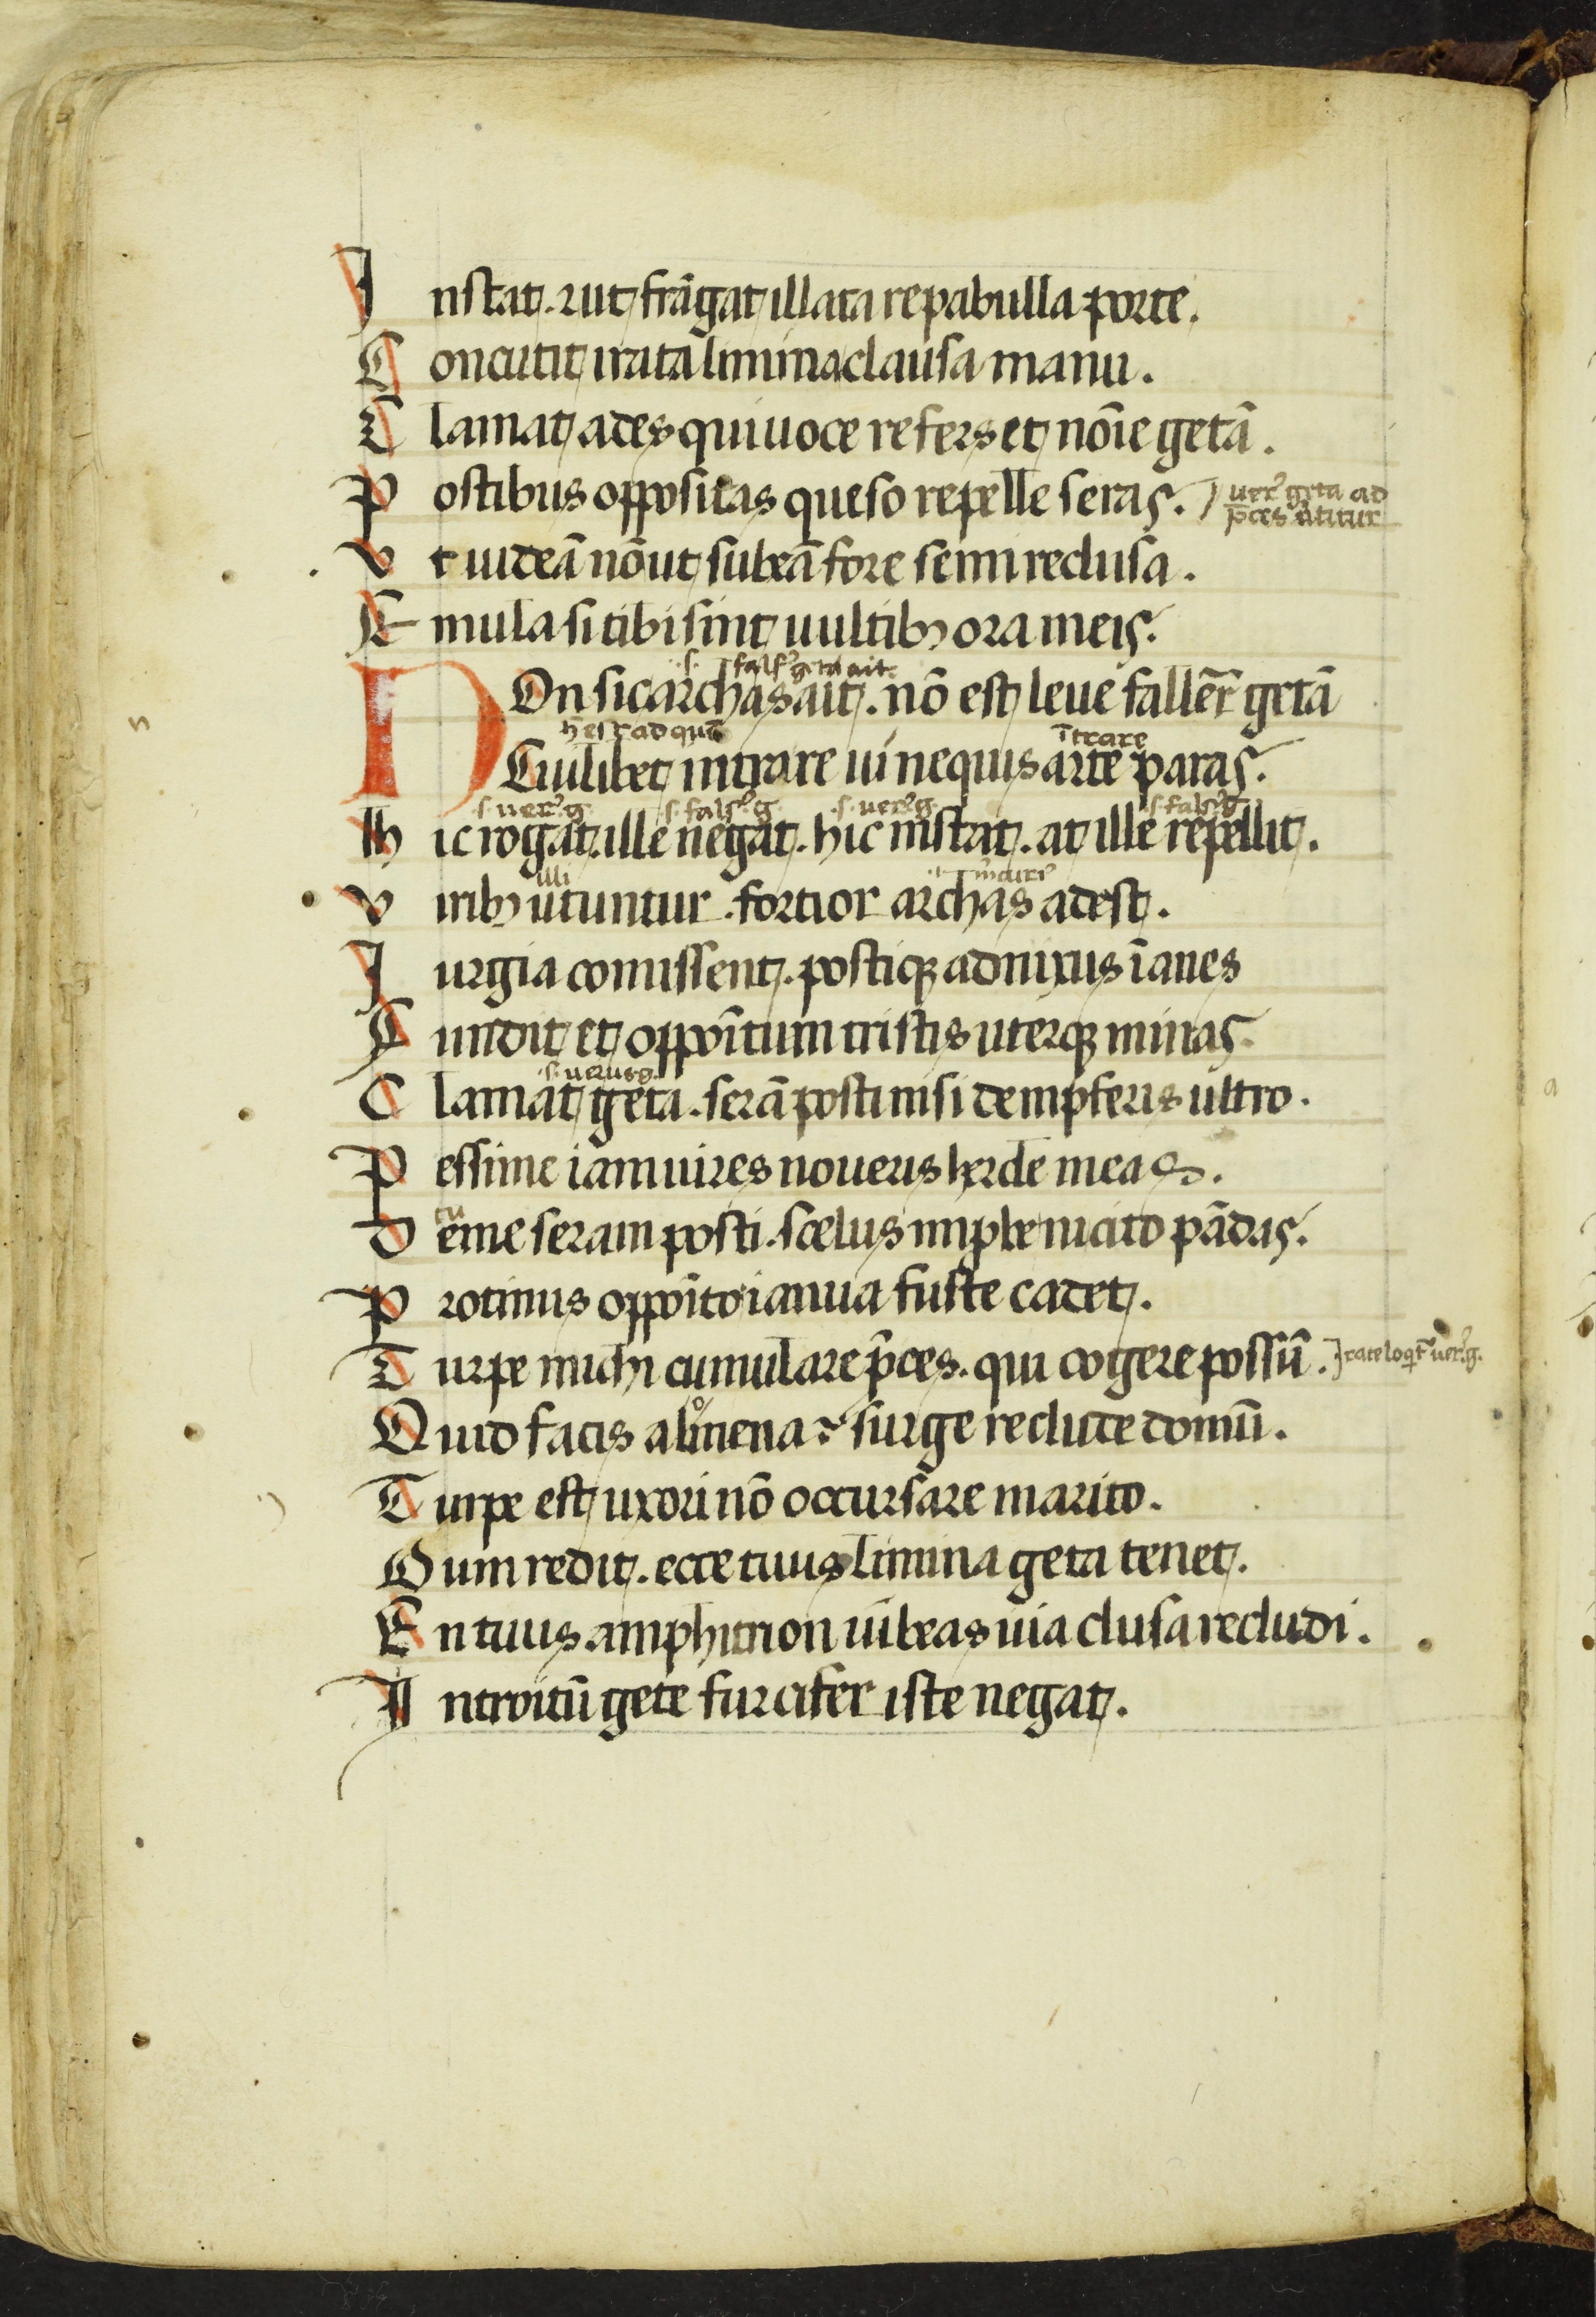 Instat. et ut frāgat illata repabulla porte.
Concutit irata limina clausa manu.
Clamat ades qui uoce refers et nōie getā.
Postibus oppositas queso repelle seras. uerꝰ geta ad
p̄ces utitur
Vt uideā nō ut subeā fore semireclusa.
Emula si tibi sint uultibꝫ ora meis.
.s. falsꝰ geta ait.
NOn sic archas ait. nō est leue fallēr̄ getā
trare
Cuilibet intrare ui nequis arte paras.
.s. uerꝰ .g. .s. falsꝰ .g. .s. uerꝰ g. .s. falsꝰ g.
Hic rogat. ille negat. hic instat. at ille repellit.
illi
Viribꝫ utuntur. fortior archas adest.
Iurgia comissent. postiqꝫ adnixus īanes
Fundit et oppoītum tristis uterqꝫ minas.
.s. uerus g.
Clamat geta. serā posti nisi dempseris ultro.
Pessime iam uires noueris herde meas.
tu
Deme seram posti. scelus imple ni cito pādas.
Protinus oppoīto ianua fuste cadet.
Turpe michi cumulare p̄ces. qui cogere possū. irate loqit̄ uerꝰ .g.
Quid facis almena? surge reclude domū.
Turpe est uxori nō occursare marito.
Dum redit. ecce tuus limina geta tenet.
En tuus amphitrion iubeas uia clusa recludi.
Introitū gete furcifer iste negat.